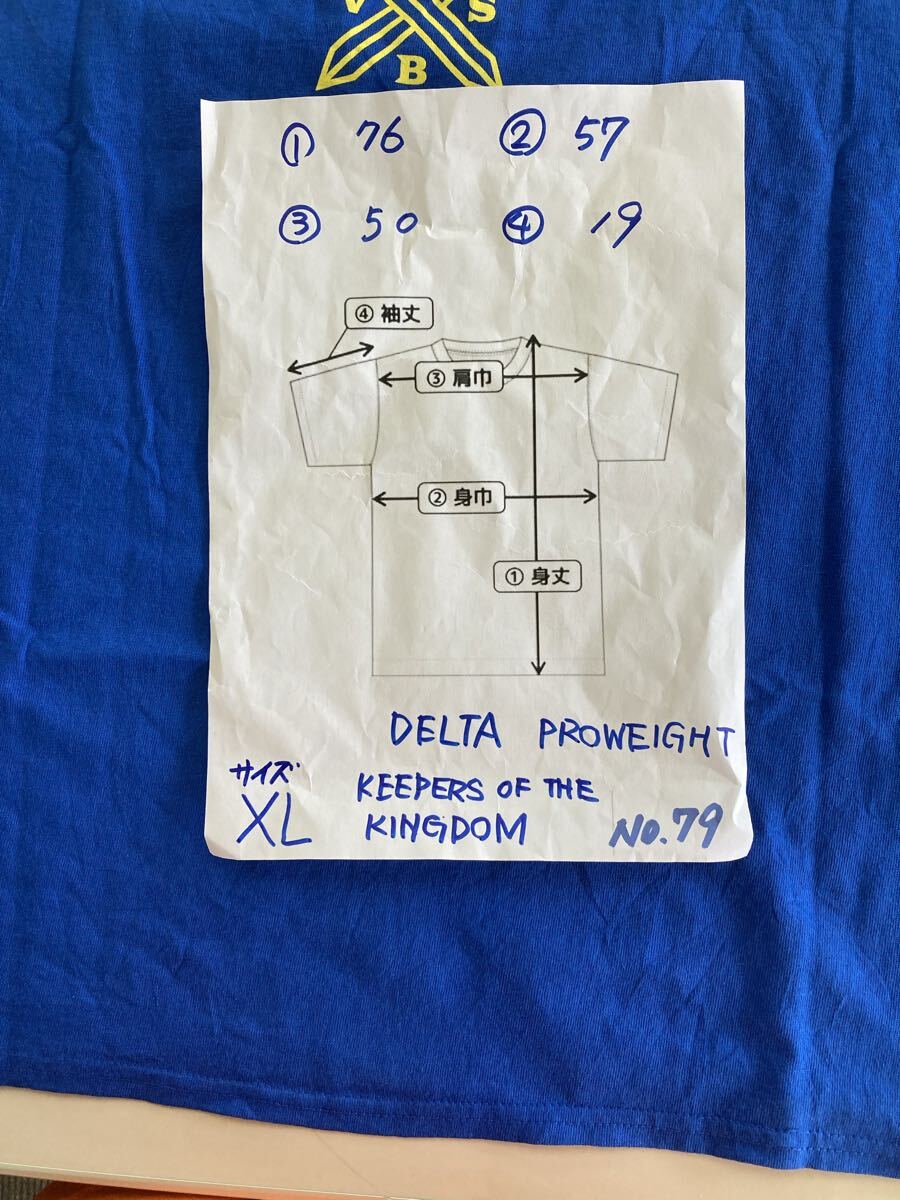 V S
B
① 76 ② 57
③ 50 ④ 19
④ 袖丈
③ 肩巾
② 身巾
① 身丈
DELTA PROWEIGHT
サイズ
XL
KEEPERS OF THE
KINGDOM
No.79